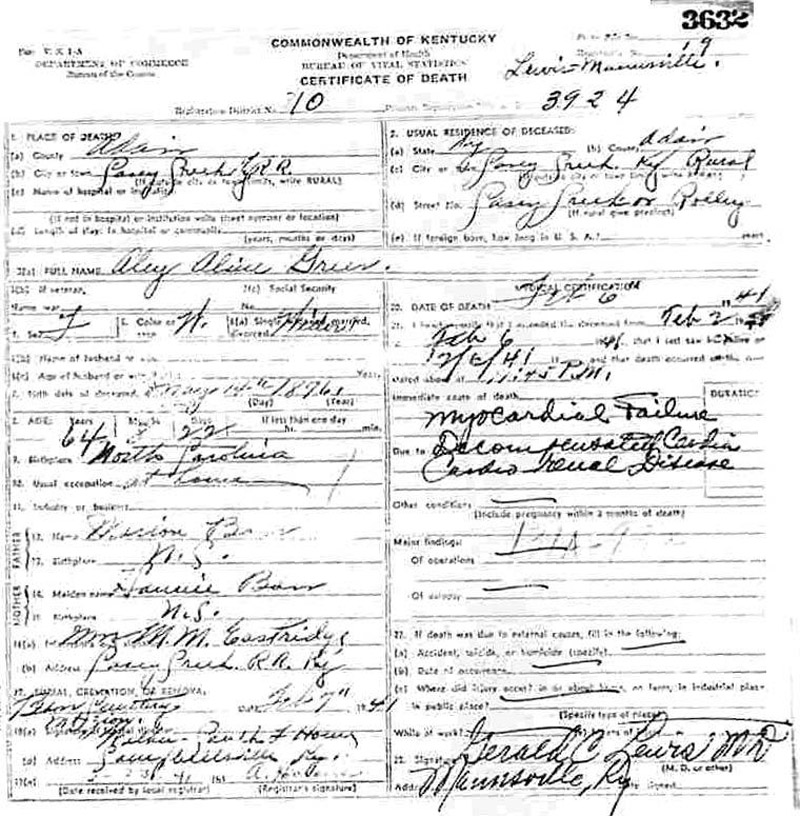 3632
COMMONWEALTH OF KENTUCKY
Department of Health
BUREAU OF VITAL STATISTICS
CERTIFICATE OF DEATH
DEPARTMENT OF COMMERCE
Bureau of the Census
19
Lewis-Mannsville.
Registration District No. 10
3924
1. PLACE OF DEATH
(a) County Adair
(b) City or town Casey Creek Ky R.R.
(If outside city or town limits, write RURAL)
(c) Name of hospital or institution
(If not in hospital or institution write street number or location)
(d) Length of stay: In hospital or community
(years, months or days)
2. USUAL RESIDENCE OF DECEASED:
(a) State Ky (b) County Adair
(c) City or town Casey Creek Ky Rural
(d) Street No. Casey Creek or
(If rural give precinct)
(e) If foreign born, how long in U. S. A.? years
3(a) FULL NAME Aley Green.
3(b) If veteran,
Name war
3(c) Social Security
No.
4. Sex F 5. Color or race W. 6(a) Single, married, divorced
6(b) Name of husband or wife
6(c) Age of husband or wife Years
7. Birth date of deceased May 14th
(Day) (Year)
8. AGE: Years Months Days If less than one day
64 22 hr. min.
9. Birthplace North Carolina
10. Usual occupation at home
11. Industry or business
FATHER
12. Name Marion
13. Birthplace N.C.
MOTHER
14. Maiden name
15. Birthplace N.C.
Mrs M.M. Eastridge
(b) Address Casey Creek R.R. Ky
17. BURIAL, CREMATION, OR REMOVAL
Feb 7" 1941
(b) Address Campbellsville Ky.
(Date received by local registrar) (Registrar's signature)
MEDICAL CERTIFICATION
20. DATE OF DEATH 6 1941
21. I hereby certify that I attended the deceased from Feb 2
Feb 6 1941, that I last saw alive on
2/6/41 and that death occurred on the
stated above at 11:45 P.M.
Immediate cause of death
DURATION
Myocardial Failure
Due to Decompensated Cardia
Cardio Renal Disease
Other conditions
(Include pregnancy within 3 months of death)
Major findings:
Of operations
Of autopsy
22. If death was due to external causes, fill in the following:
(a) Accident, suicide, or homicide (specify)
(b) Date of occurrence
(c) Where did injury occur? in or about home, on farm, in industrial place
in public place?
(Specify type of place)
While at work?
23. Signature Gerald C. Lewis MD
(M. D. or other)
Address Mannsville, Ky